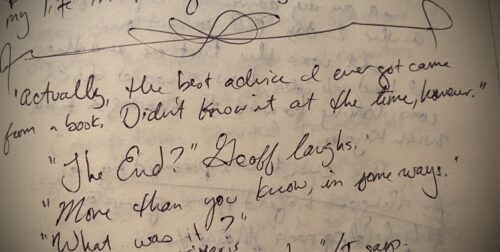 my life
"Actually, the best advice I ever got came
from a book. Didn't know it at the time, however."
"The End?" Geoff laughs.
"More than you know, in some ways."
"What was it?"
I say.